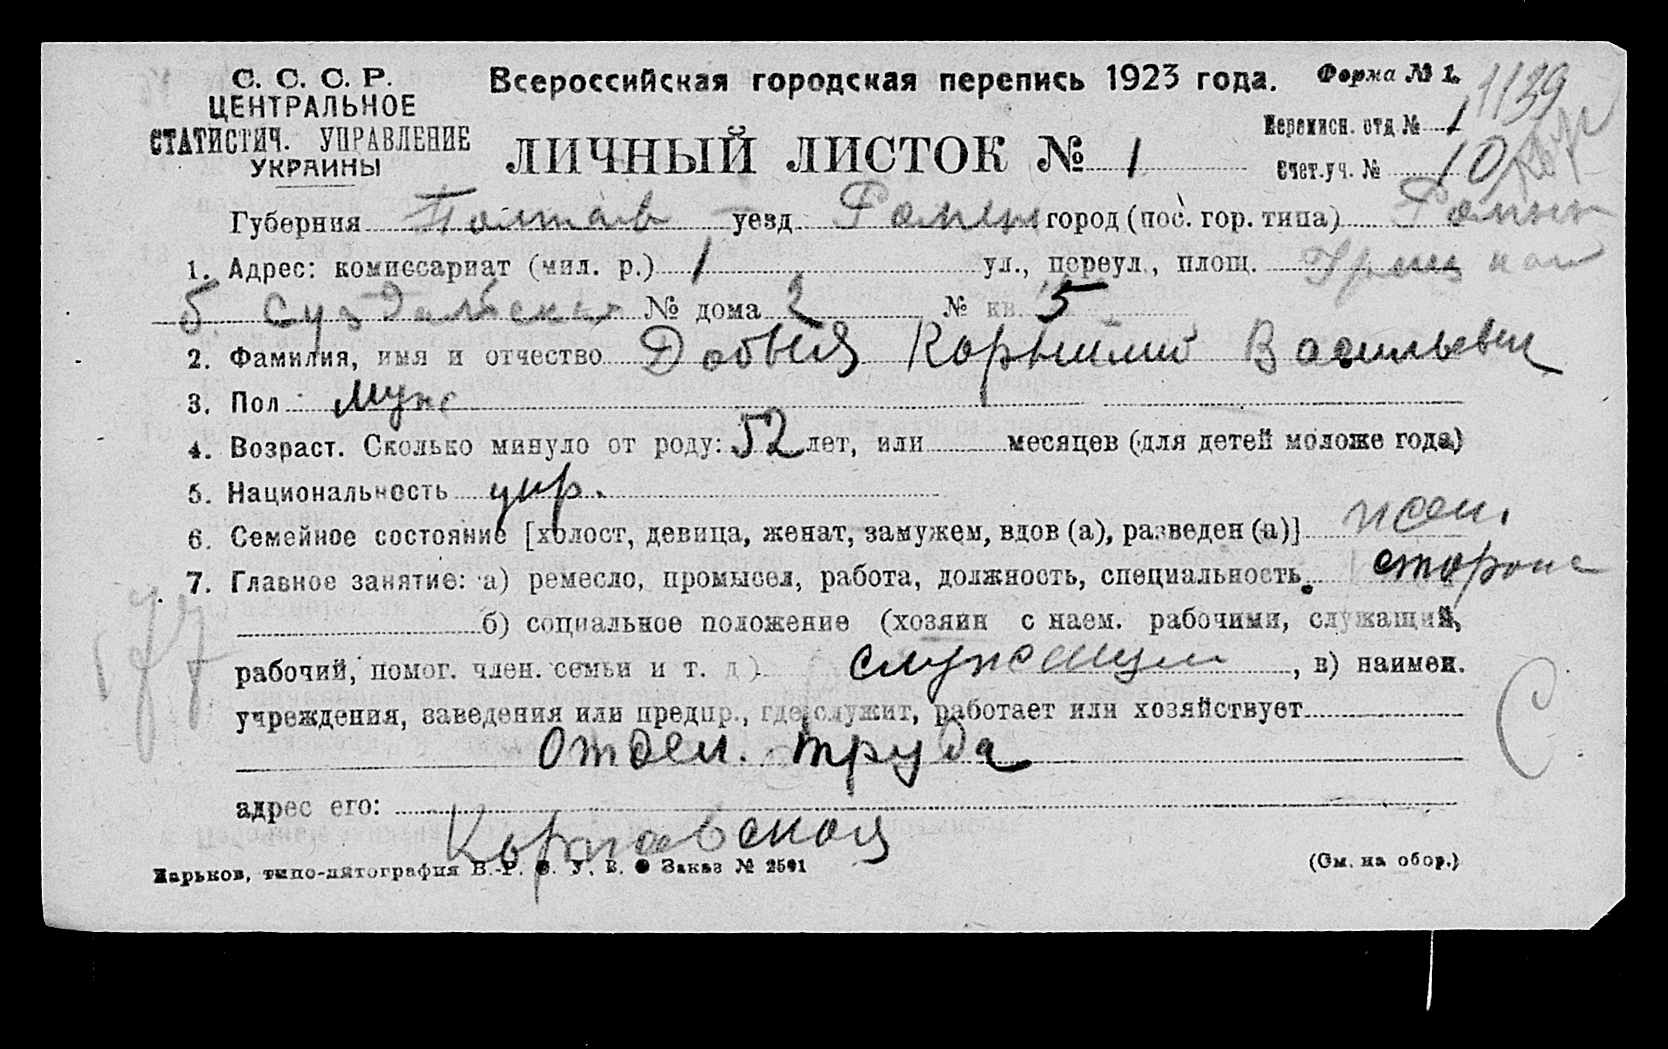 С. С. С. Р.
ЦЕНТРАЛЬНОЕ
СТАТИСТИЧ. УПРАВЛЕНИЕ
УКРАИНЫ
Всероссийская городская перепись 1923 года.
Форма № 1.
1139
ЛИЧНЫЙ ЛИСТОК № 1
Переписн. отд № 1
Счет.уч. № 10
Губерния Полтав уезд Ромен город (пос. гор. типа) Ромны
1. Адрес: комиссариат (мил. р.) 1 ул., переул., площ.
б. Суздальская № дома 2 № кв. 5
2. Фамилия, имя и отчество Довбня Корнилий Васильевич
3. Пол муж
4. Возраст. Сколько минуло от роду: 52 лет, или месяцев (для детей моложе года)
5. Национальность укр.
6. Семейное состояние [холост, девица, женат, замужем, вдов (а), разведен (а)] жен.
7. Главное занятие: а) ремесло, промысел, работа, должность, специальность сторож
б) социальное положение (хозяин с наем. рабочими, служащий,
рабочий, помог. член. семьи и т. д.) служащий, в) наимен.
учреждения, заведения или предпр., где служит, работает или хозяйствует
Отдел. труда
адрес его:
Харьков, типо-литография В.-Р. С. У. В. Заказ № 2501
(См. на обор.)